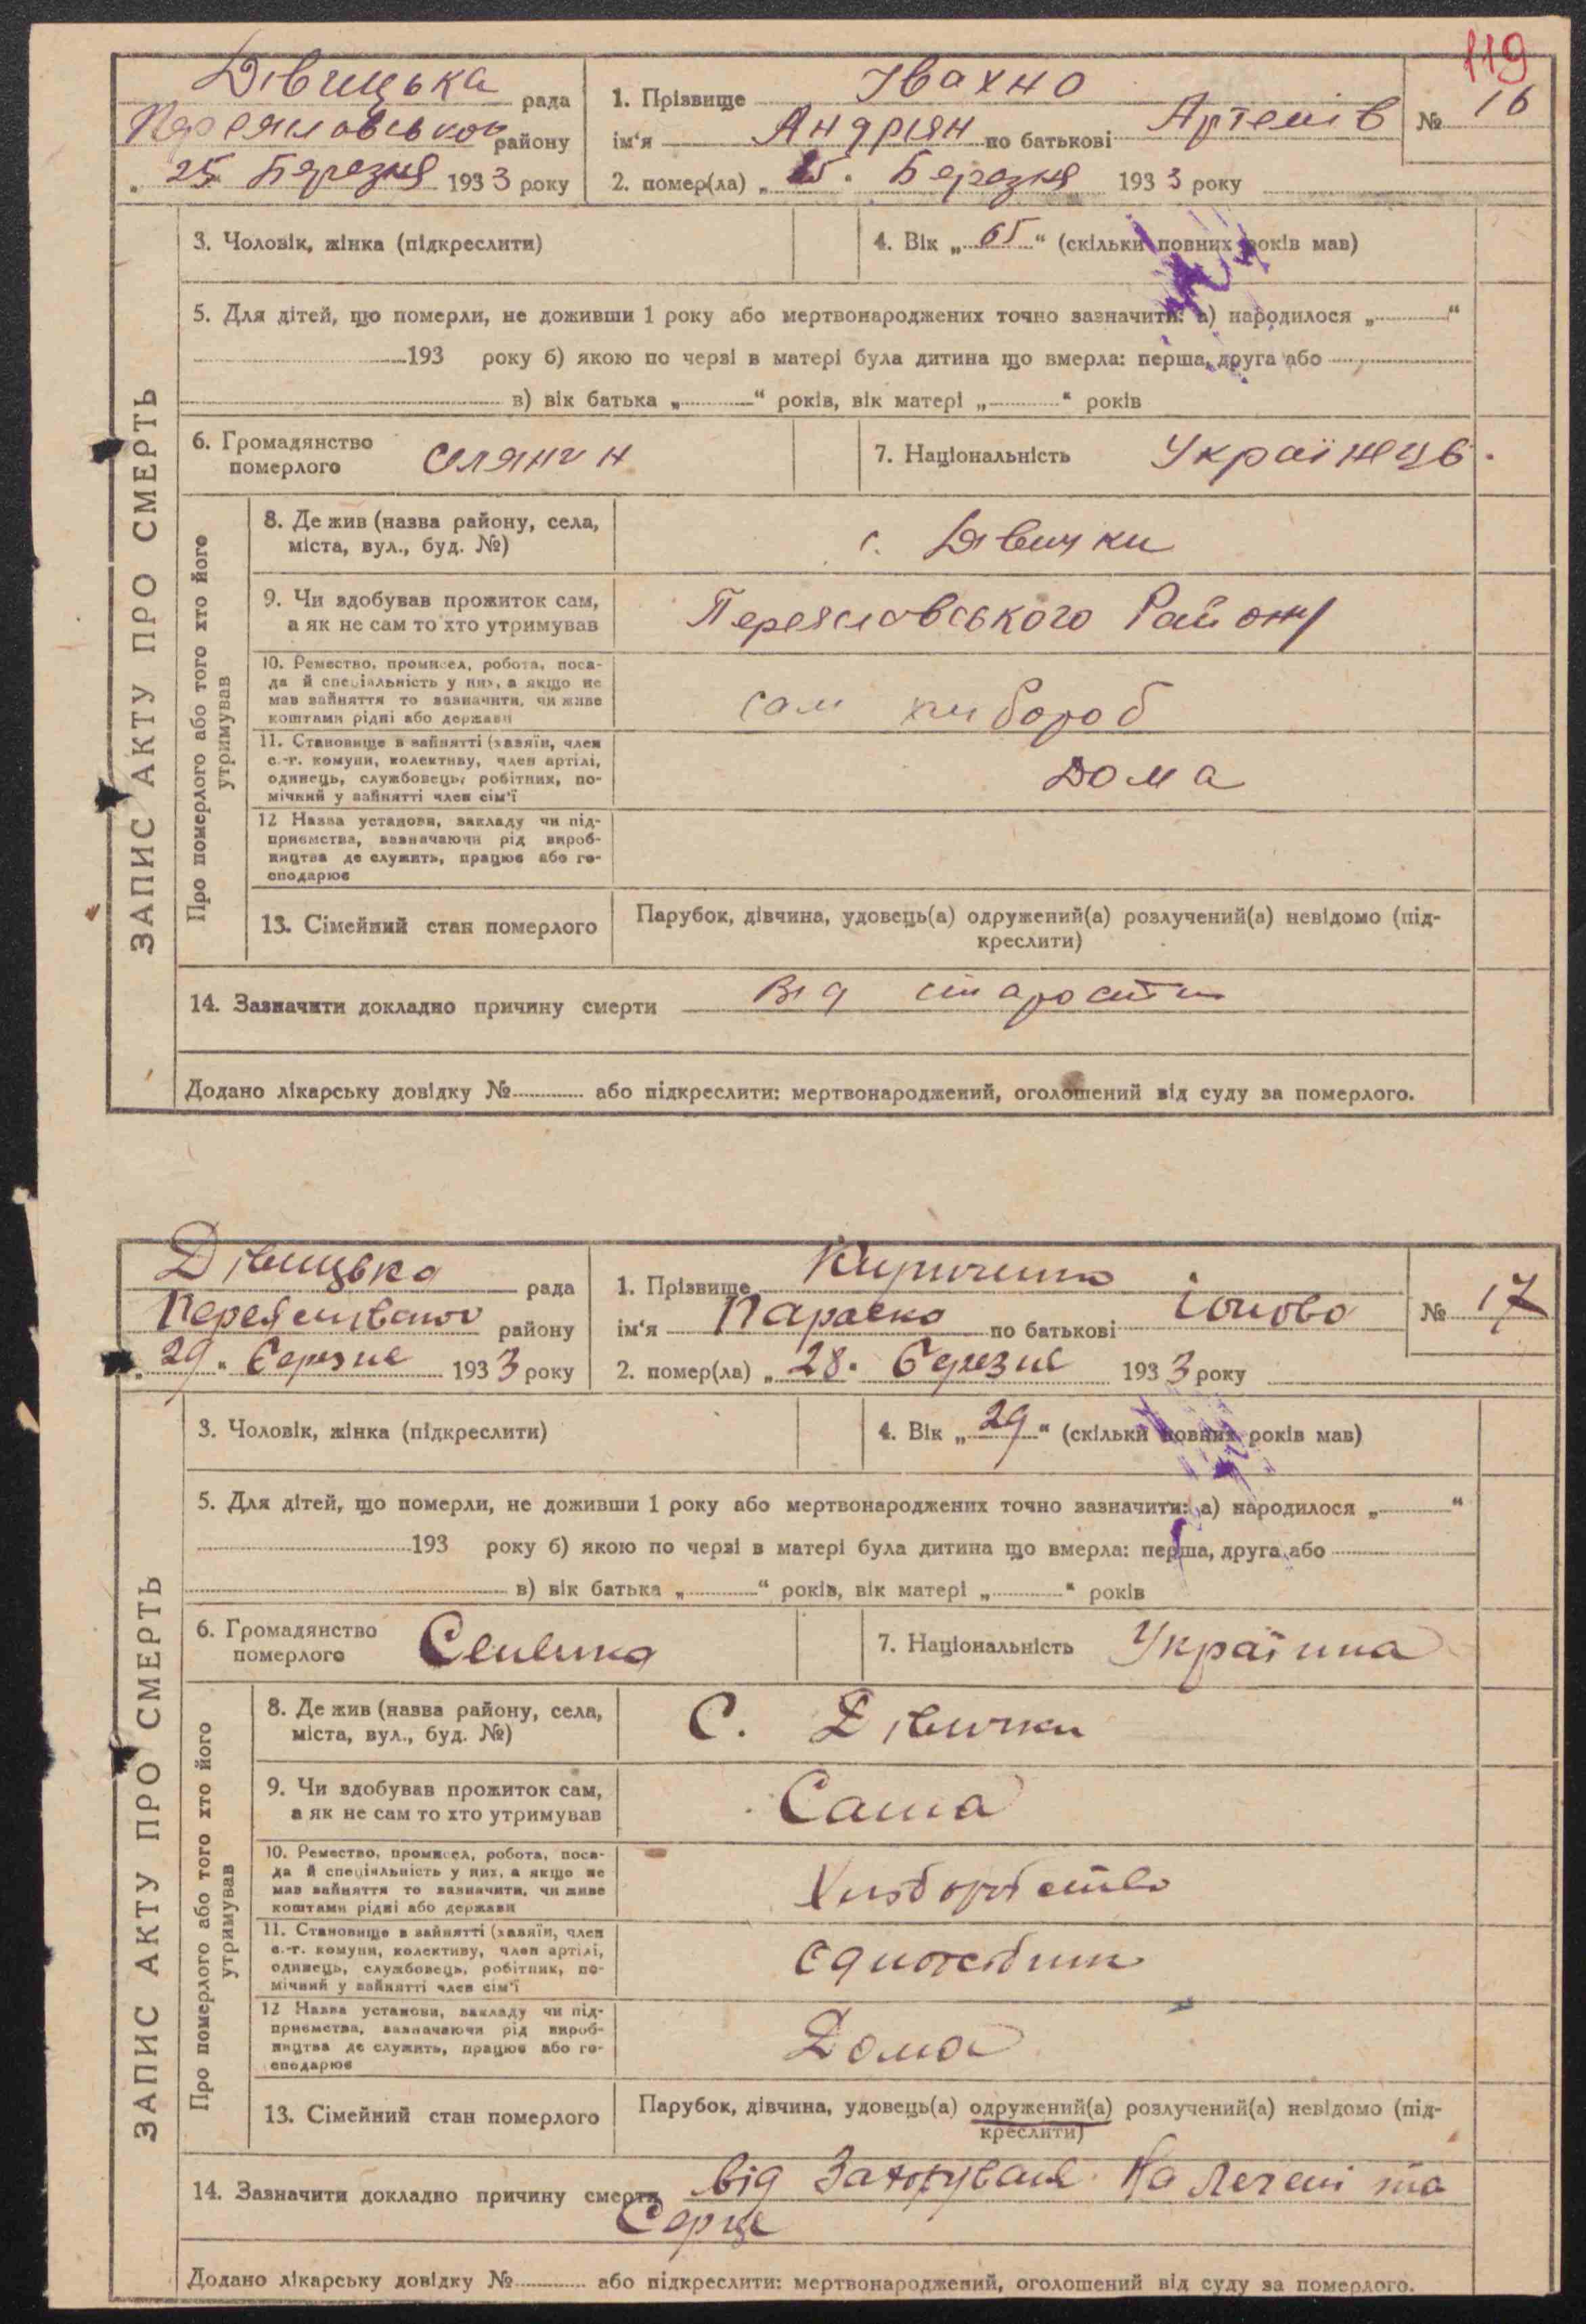 119
Дівицька рада
Переяславського району
„ 25 Березня 1933 року
1. Прізвище Івахно
ім'я Андріян по батькові Артемів
№ 16
2. помер(ла) „ 25 " Березня 1933 року
3. Чоловік, жінка (підкреслити)
4. Вік „ 65 " (скільки повних років мав)
5. Для дітей, що померли, не доживши 1 року або мертвонароджених точно зазначити: а) народилося „ "
193 року б) якою по черзі в матері була дитина що вмерла: перша, друга або
в) вік батька „ " років, вік матері „ " років
6. Громадянство померлого селянин
7. Національність Українець.
ЗАПИС АКТУ ПРО СМЕРТЬ
Про померлого або того хто його утримував
8. Де жив (назва району, села, міста, вул., буд. №)
с. Дівички
9. Чи здобував прожиток сам, а як не сам то хто утримував
Переяславського Району
10. Ремество, промисел, робота, посада й спеціальність у них, а якщо не мав зайняття то зазначити, чи живе коштами рідні або держави
сам хлібороб
11. Становище в зайнятті (хазяїн, член с.-г. комуни, колективу, член артілі, одинець, службовець, робітник, помічний у зайнятті член сім'ї
Дома
12 Назва установи, закладу чи підприємства, зазначаючи рід виробництва де служить, працює або господарює
13. Сімейний стан померлого
Парубок, дівчина, удовець(а) одружений(а) розлучений(а) невідомо (підкреслити)
14. Зазначити докладно причину смерти Від старости
Додано лікарську довідку № або підкреслити: мертвонароджений, оголошений від суду за померлого.
Дівицька рада
району
„ 29 " Березня 1933 року
1. Прізвище Кириченко
ім'я Параска по батькові
№ 17
2. помер(ла) „ 28 " Березня 1933 року
3. Чоловік, жінка (підкреслити)
4. Вік „ 29 " (скільки повних років мав)
5. Для дітей, що померли, не доживши 1 року або мертвонароджених точно зазначити: а) народилося „ "
193 року б) якою по черзі в матері була дитина що вмерла: перша, друга або
в) вік батька „ " років, вік матері „ " років
6. Громадянство померлого Селянка
7. Національність Українка
ЗАПИС АКТУ ПРО СМЕРТЬ
Про померлого або того хто його утримував
8. Де жив (назва району, села, міста, вул., буд. №)
С. Дівички
9. Чи здобував прожиток сам, а як не сам то хто утримував
Сама
10. Ремество, промисел, робота, посада й спеціальність у них, а якщо не мав зайняття то зазначити, чи живе коштами рідні або держави
Хліборобство
11. Становище в зайнятті (хазяїн, член с.-г. комуни, колективу, член артілі, одинець, службовець, робітник, помічний у зайнятті член сім'ї
12 Назва установи, закладу чи підприємства, зазначаючи рід виробництва де служить, працює або господарює
Дома
13. Сімейний стан померлого
Парубок, дівчина, удовець(а) одружений(а) розлучений(а) невідомо (підкреслити)
14. Зазначити докладно причину смерти від На Печені та
Серце
Додано лікарську довідку № або підкреслити: мертвонароджений, оголошений від суду за померлого.